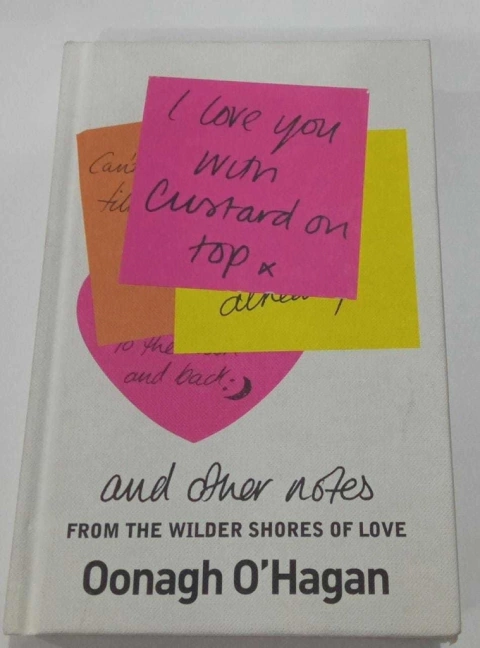 I love you
with
Custard on
top x
Can't
to the
and back
and other notes
FROM THE WILDER SHORES OF LOVE
Oonagh O'Hagan